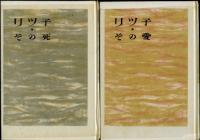 リツ子・
その死
リツ子・
その愛